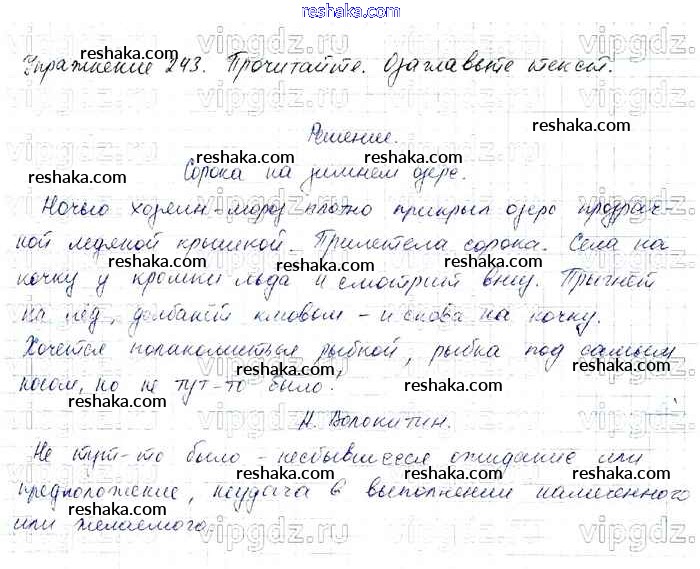 reshaka.com
Упражнение 243. Прочитайте. Озаглавьте текст.
Решение.
Сорока на зимнем озере.
Ночью хозяин-мороз плотно прикрыл озеро прозрач-
ной ледяной крышкой. Прилетела сорока. Села на
кочку у кромки льда и смотрит вниз. Прыгнет
на лёд, долбанёт клювом - и снова на кочку.
Хочется полакомиться рыбкой, рыбка под самым
носом, но не тут-то было!
Н. Волокитин.
Не тут-то было - несбывшееся ожидание или
предположение, неудача в выполнении намеченного
или желаемого.